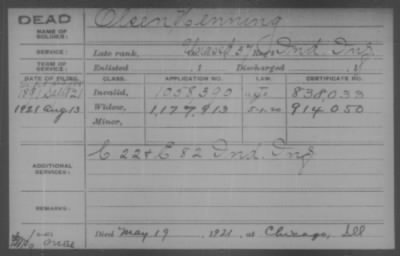 DEAD
NAME OF SOLDIER:
Olsen Henning
SERVICE:
Late rank, 37 Reg't Ind. Inf
TERM OF SERVICE:
Enlisted , 1 Discharged , 1
DATE OF FILING.
CLASS.
APPLICATION NO.
LAW.
CERTIFICATE NO.
Invalid, 1058393 838,033
1921 Aug 13 Widow, 1,177,913 914,050
Minor,
ADDITIONAL SERVICES:
C 22 & E 82 Ind. Inf
REMARKS:
Died May 19 1921, at Chicago, Ill